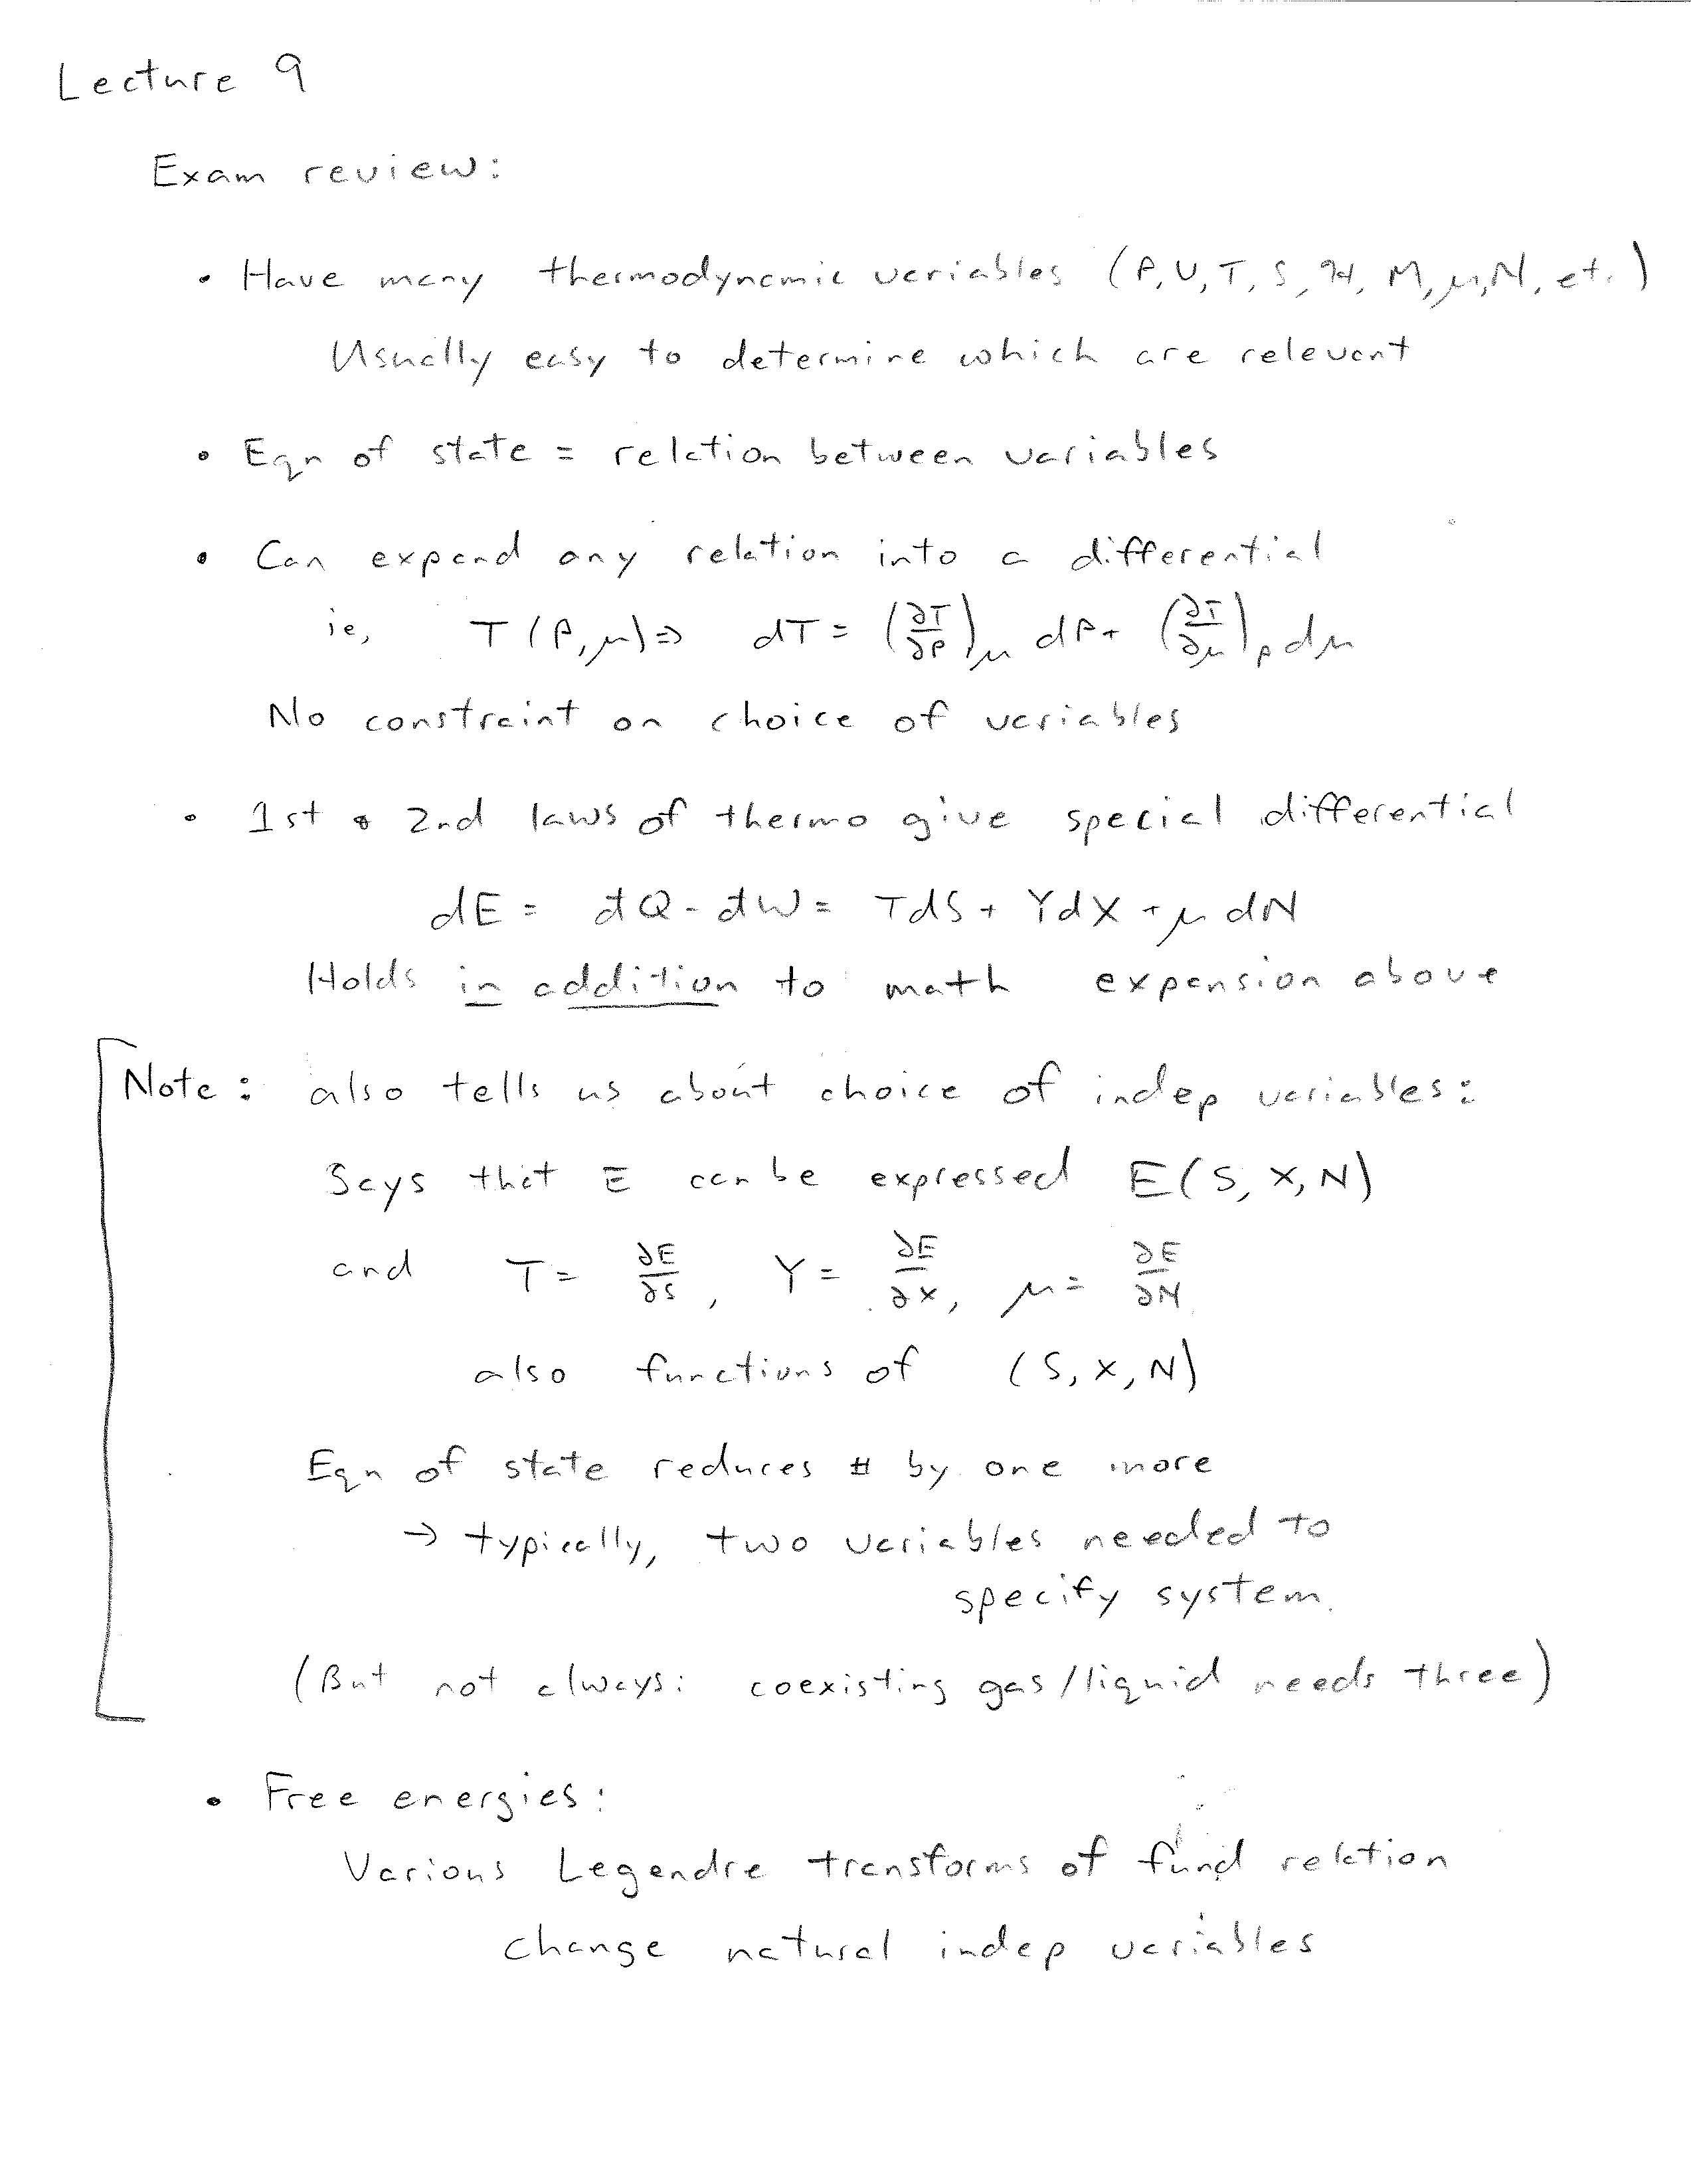 Lecture 9
Exam review:
• Have many thermodynamic variables (P, V, T, S, ℋ, M, μ, N, et.)
Usually easy to determine which are relevant
• Eqn of state = relation between variables
• Can expand any relation into a differential
ie, T(P, μ) ⇒ dT = (∂T/∂P)_μ dP + (∂T/∂μ)_P dμ
No constraint on choice of variables
• 1st & 2nd laws of thermo give special differential
dE = đQ - đW = TdS + YdX + μdN
Holds in addition to math expansion above
Note: also tells us about choice of indep variables:
Says that E can be expressed E(S, X, N)
and T = ∂E/∂S, Y = ∂E/∂X, μ = ∂E/∂N
also functions of (S, X, N)
Eqn of state reduces # by one more
→ typically, two variables needed to
specify system.
(But not always: coexisting gas/liquid needs three)
• Free energies:
Various Legendre transforms of fund relation
change natural indep variables